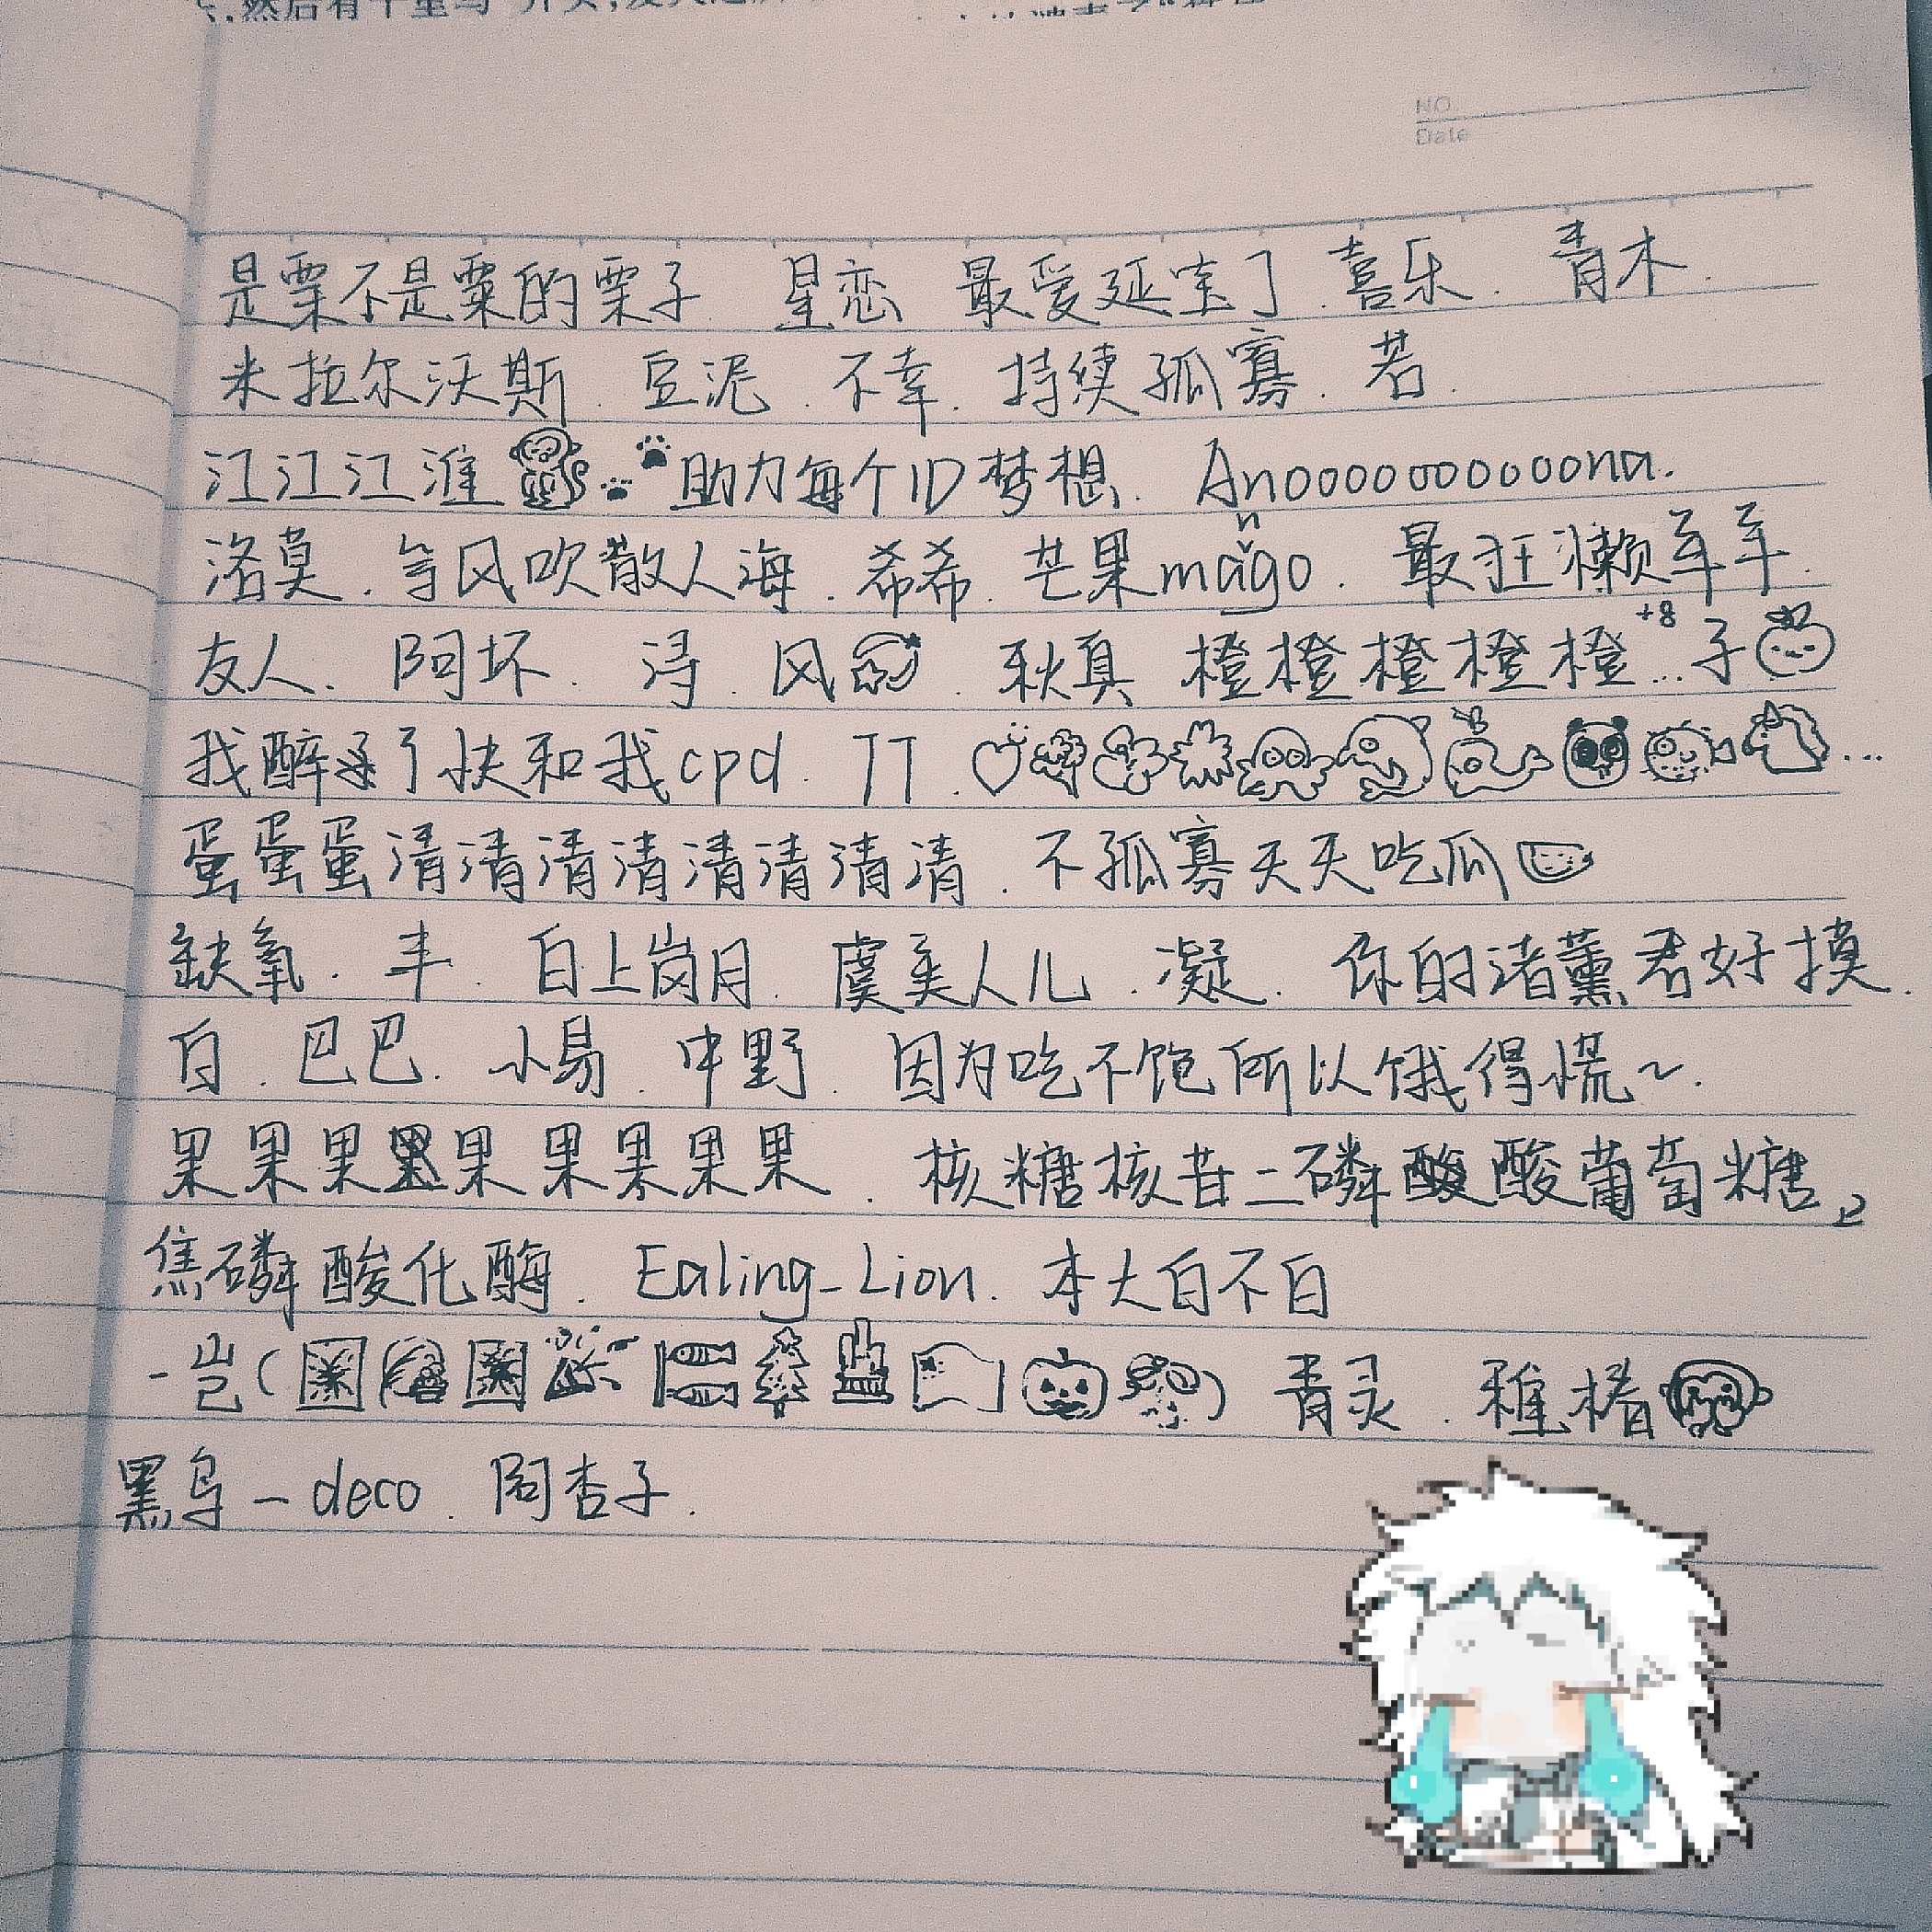 NO.
Date
是栗不是粟的栗子 星恋 最爱延宝了.喜乐. 青木.
米拉尔沃斯.豆泥.不幸.持续孤寡.若.
江江江淮 助力每个ID梦想. Anooooooooooona.
洛莫.等风吹散人海.希希.芒果mango.最狂懒羊羊.
友人.阿坏.浔.风.秋真 橙橙橙橙橙+8...子
我醉了快和我cpd. 丁丁. ...
蛋蛋蛋清清清清清清清清.不孤寡天天吃瓜
缺氧.丰.白上岗月.虞美人儿.凝.你的渚薰君好摸.
白.巴巴.小易.中野.因为吃不饱所以饿得慌~.
果果果果果果果果.核糖核苷二磷酸葡萄糖
焦磷酸化酶.Ealing_Lion.本大白不白
-岂( ) 青灵.稚椿
黑鸟-deco.阎杏子.